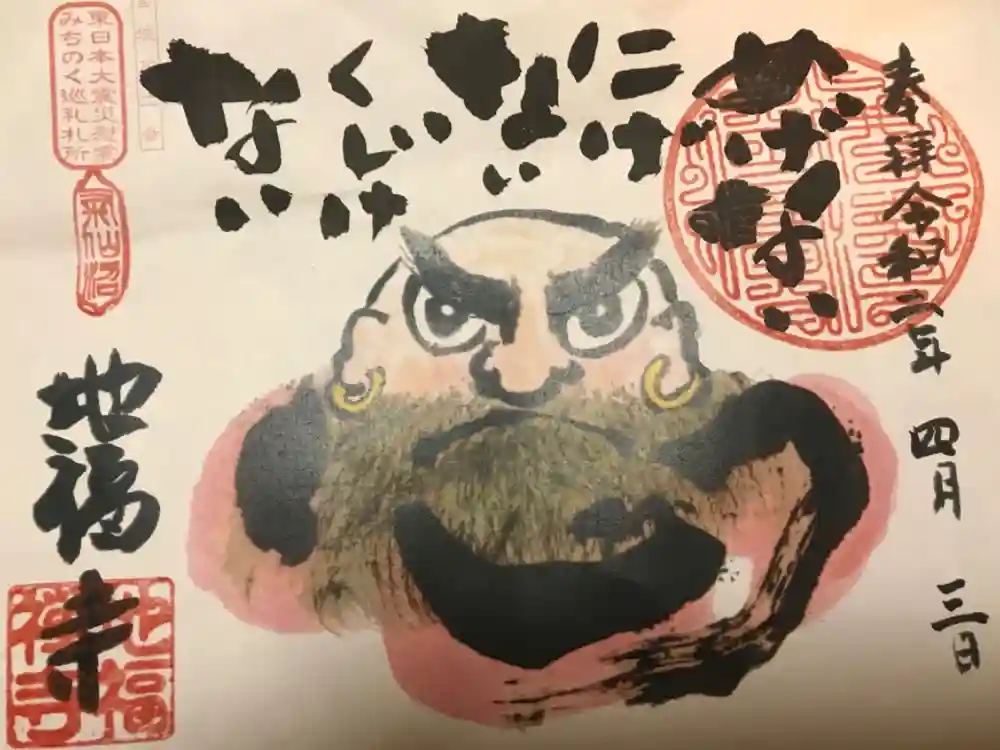 奉拝 令和二年 四月 三日
めげない
にげ
ない
くじけ
ない
東日本大震災慰霊
みちのく巡礼札所
気仙沼
地福寺
地福
禅寺